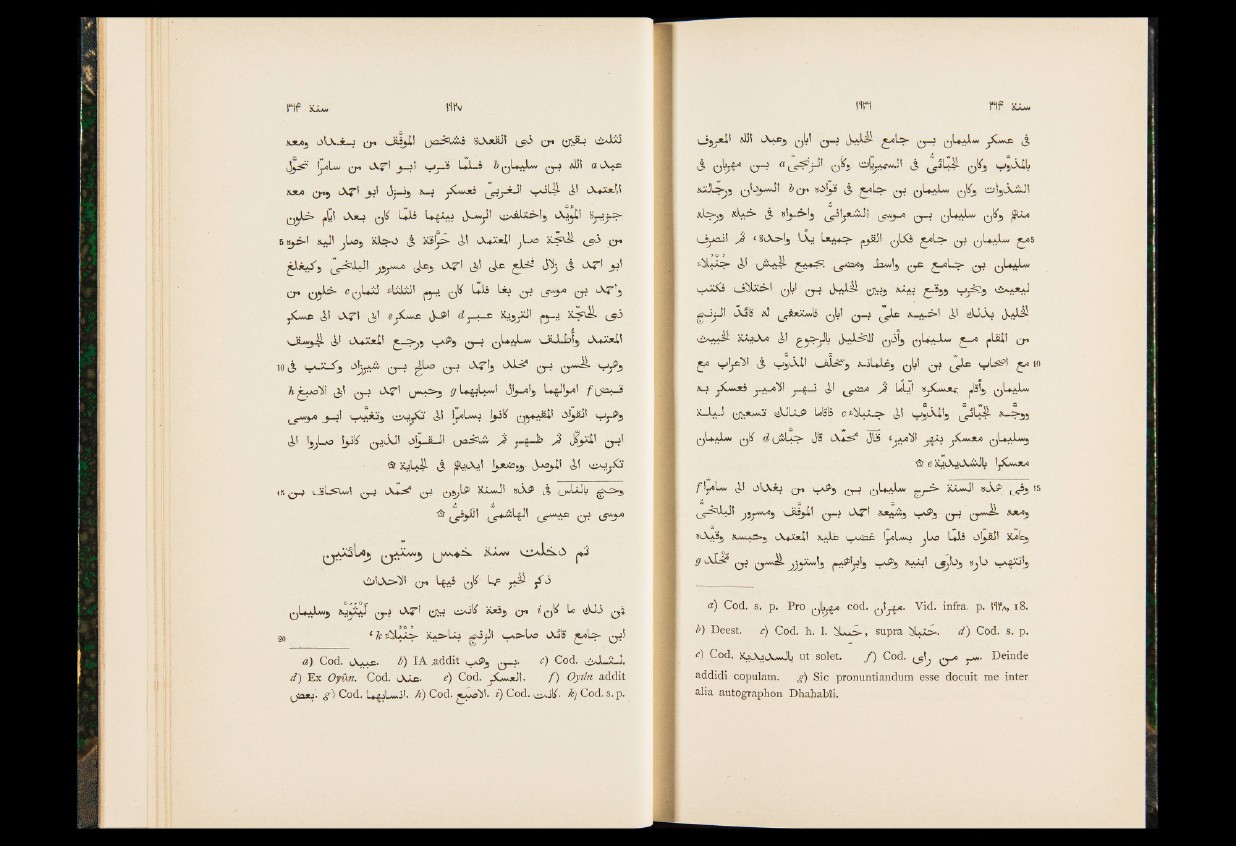 سنة ٢٦۴ ١٩٢٦
فى عسكر سليمان بن جامع للخليل بن ابان وعبد الله المعروف
بالمذوَّب وكان الجُبّائىّ فى السميريّات وكان الزنجىّ a بن مهربان فى
الشذوات وكان سليمان بن جامع فى قوّاده من b السودان ورجّالته
منهم وكان سليمان بن موسى الشعرانىّ واخواه فى خيله ورجله
مع سليمان بن جامع فكان القوم جميعا يدًا واحدة، ثم انصرف 5
سليمان بن جامع عن واسط ومضى بجميع الجيش الى جُنْبُلاء c
ليعيث ويخرّب ووقع بينه وبين الخليل بن ابان اختلاف فكتب
الخليل بذلك الى اخيه علىّ بن ابان فاستعفى له قائدَ الزنج
من المقام مع سليمان وأذن للخليل بالرجوع الى مدينة الخبيث
مع اصحاب علىّ بن ابان وغلمانه وتخلّف المذوَّب فى الاعراب مع 10
سليمان وأقام بمعسكره أيّامًا ثم مضى الى نهر الامير فعسكر به
ووجّه الجُبّائىّ والمذوَّب الى جنبلاء c فاقاما هنالك تسعين ليلة
وسليمان معسكر بنهر الامير، قال محمّد قال جبّاش d كان سليمان
معسكرا بالشديديّة e ۞
وفى هذه السنة خرج سليمان بن وهب من بغداد الى سامرّا f 15
ومعه الحسن بن وهب وشيّعه احمد بن الموفّق ومسرور البلخىّ
وعامّة القوّاد فلمّا صار بسامرّا غضب عليه المعتمد وحبسه وقيّده
وانتهب داره ودارَى ابنيه وهب وابراهيم واستوزر الحسن بن مَخْلَد g
a) Cod. s. p. Pro مهربان cod. مهران. Vid. infra. p. ١٩٢٨, 18.
b) Deest. c) Cod. h. l. حنبلا, supra جنبلا. d) Cod. s. p.
e) Cod. بالسديدية ut solet. f) Cod. سر من راى. Deinde
addidi copulam. g) Sic pronuntiandum esse docuit me inter
alia autographon Dhahabîi.
١٩٢٧ سنة ٢٦۴
لثلث بقين من ذى القعدة فشخص الموفّق من بغداد ومعه
عبد a الله بن سليمان b فلمّا قرب ابو احمد من سامرّا تحوّل
المعتمد الى الجانب الغربىّ فعسكر به ونزل ابو احمد ومن معه
جزيرة المؤيّد واختلفت الرسل بينهما فلمّا كان بعد ايّام خلون
من ذى الحجّة صار المعتمد الى حَرّاقة فى دجلة وصار اليه اخوه 5
ابو احمد فى زلال فخلع على ابى احمد وعلى مسرور البلخىّ وكيغلغ
واحمد بن موسى بن بغا فلمّا كان يوم الثلثاء لثمان c خلون من
ذى الحجّة يوم التروية عبر d اهل عسكر e ابى احمد الى عسكر
المعتمد وأُطلق سليمان بن وهب ورجع المعتمد الى الجوسف
وهرب الحسن بن مخلد واحمد بن صالح بن شيرزاد وكتب فى 10
قبض f اموالهما واموال اسبابهما g وحبس احمد بن ابى الاصبغ h
وهرب القوّاد المقيمون كانوا بسامرّا الى تكريت وتغيّب ابو موسى
ابن المتوكّل ثم ظهر ثم شخص القوّاد الذين كانوا صاروا الى
تكريت الى الموصل ووضعوا ايديهم فى الجباية ۞
وحجّ بالناس فى هذه السنة هارون بن محمّد بن اسحاق بن 15
موسى بن عيسى الهاشمىّ الكوفىّ ۞
ثم دخلت سنة خمس وستّين ومائتين
ذكر الخبر عما كان فيها من الاحداث
فن ذلك ما كان i من وقعة كانت بين احمد بن لَيْثَوَيْه وسليمان
ابن جامع قائد صاحب الزنج بناحية جُنْبُلاء k، 20
a) Cod. عبيد. b) IA addit بن وهب. c) Cod. لثلث.
d) Ex Oyûn. Cod. عند. e) Cod. العسكر. f) Oyûn addit
بعض. g) Cod. انسابهما. h) Cod. الاصبع. i) Cod. كانت. k) Cod. s. p.